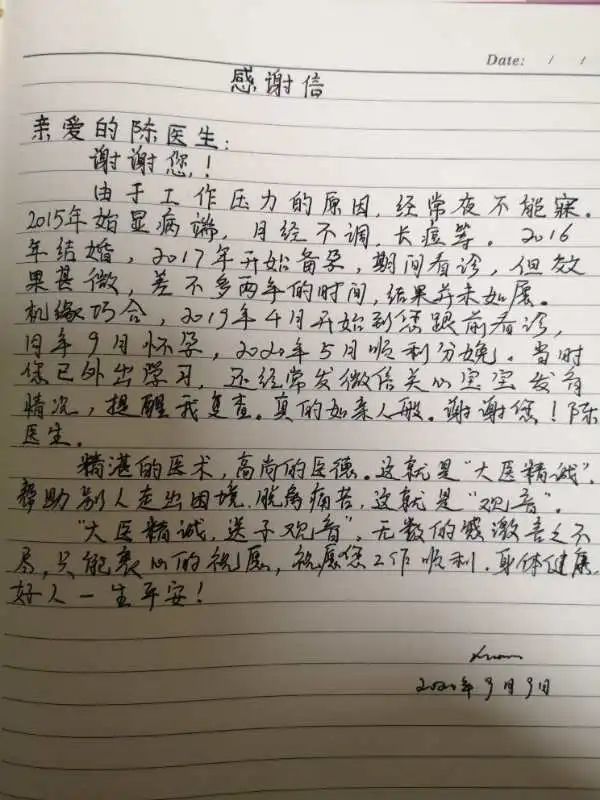 Date: / /
感谢信
亲爱的陈医生:
谢谢您!
由于工作压力的原因,经常夜不能寐。
2015年始显病端,月经不调,长痘等。2016
年结婚,2017年开始备孕,期间看诊,但效
果甚微,差不多两年的时间,结果并未如愿。
机缘巧合,2019年4月开始到您跟前看诊,
同年9月怀孕,2020年5月顺利分娩。当时
您已外出学习,还经常发微信关心宝宝发育
情况,提醒我复查。真的如亲人般。谢谢您!陈
医生。
精湛的医术,高尚的医德。这就是“大医精诚”.
帮助别人走出困境,脱离痛苦,这就是“观音”.
“大医精诚,送子观音”,无数的感激言之不
尽,只能衷心的祝愿,祝愿您工作顺利.身体健康,
好人一生平安!
2020年9月9日